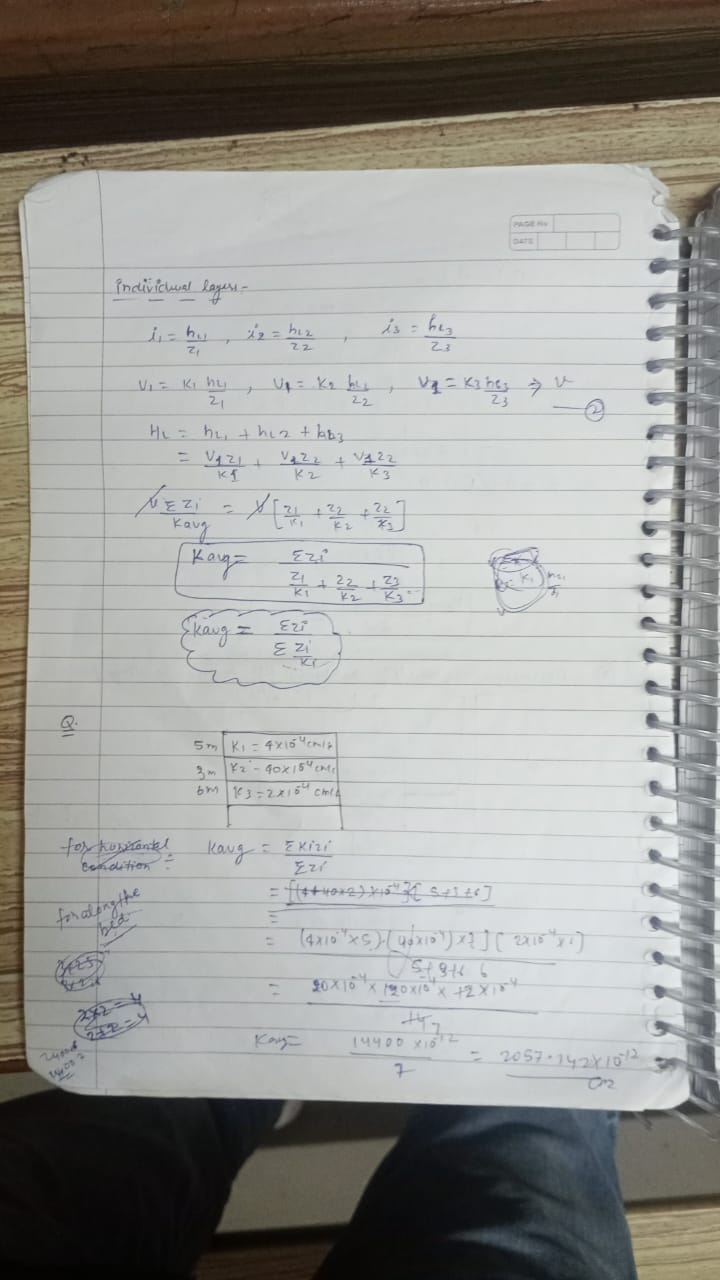 PAGE No
DATE
individual layers-
i₁ = hL1/z1 , i2 = hL2/z2 , i3 = hL3/z3
V1 = K1 hL1/z1 , V1 = K2 hL2/z2 , V1 = K3 hL3/z3 ⇒ V
②
HL = hL1 + hL2 + hL3
= V1z1/K1 + V1z2/K2 + V1z2/K3
VΣzi/Kavg = V [z1/K1 + z2/K2 + z2/K3]
Kavg = Σzi / (z1/K1 + z2/K2 + z3/K3)
K1
Kavg = Σzi / Σ zi/Ki
Q.
5m K1 = 4×10⁻⁴ cm/s
3m K2 - 40×10⁻⁴ cm/s
6m K3 = 2×10⁻⁴ cm/s
for horizontal condition :- Kavg = ΣKizi / Σzi
for along the bed.
=
2×2 = 4
2+2 = 4
Kavg = 14400 × 10⁻¹² / 7 = 2057.142×10⁻¹²